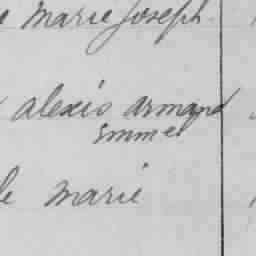 marie joseph
alexis armand
Emme
le marie